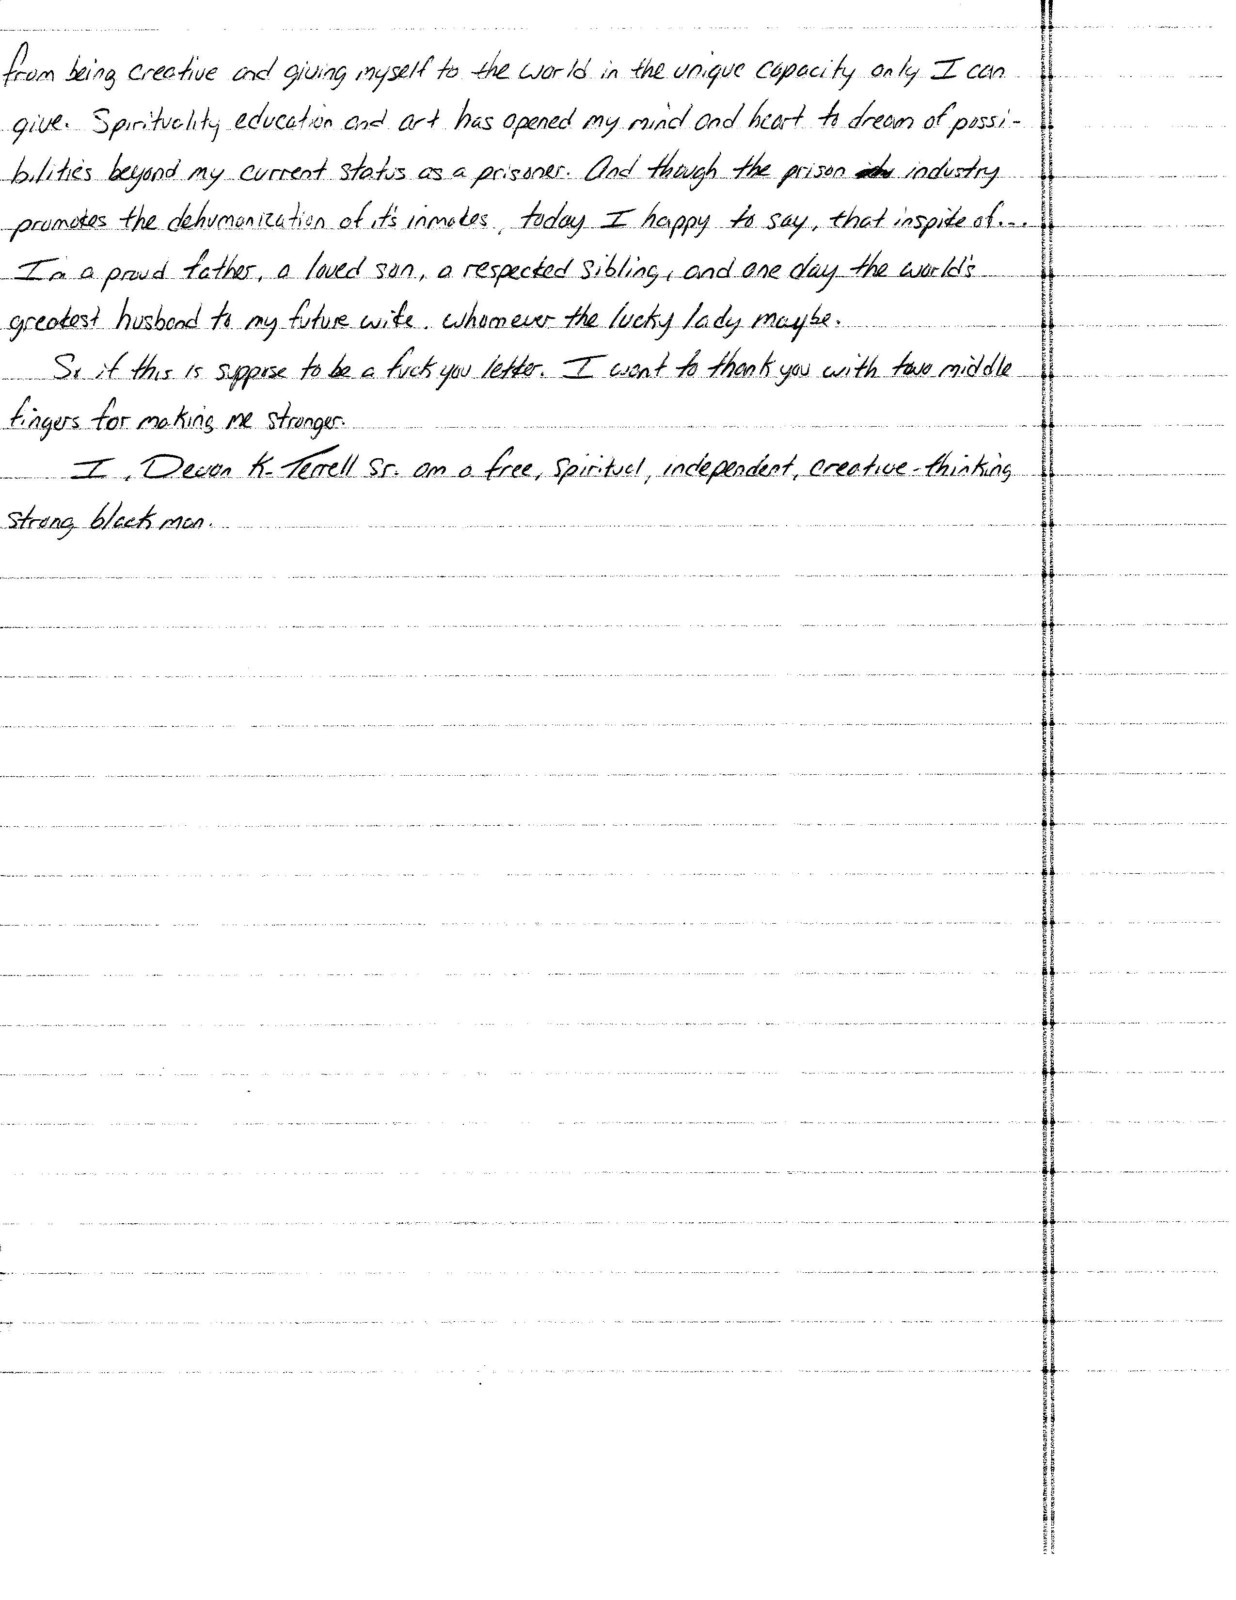 from being creative and giving myself to the world in the unique capacity only I can
give. Spirituality education and art has opened my mind and heart to dream of possi-
bilities beyond my current status as a prisoner. And though the prison industry
promotes the dehumanization of it's inmates, today I happy to say, that inspite of...
I'm a proud father, a loved son, a respected sibling, and one day the world's
greatest husband to my future wife. whomever the lucky lady maybe.
So if this is suppose to be a fuck you letter. I want to thank you with two middle
fingers for making me stronger.
I, Devon K. Terrell Sr. am a free, spiritual, independent, creative-thinking
strong black man.